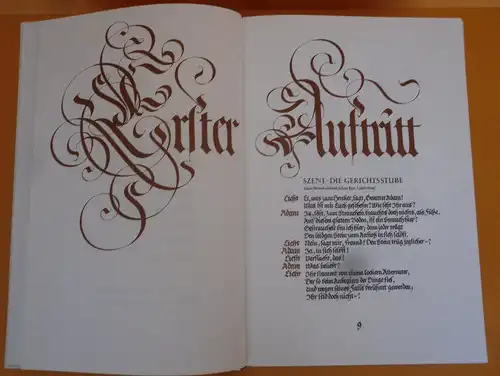 Erster
Auftritt
SZENE: DIE GERICHTSSTUBE
Licht Ei, was zum Henker, sagt, Gevatter Adam!
Was ist mit Euch geschehn? Wie seht Ihr aus?
Adam Ja, seht. Zum Straucheln brauchts doch nichts, als Füße.
Auf diesem glatten Boden, ist ein Strauch hier?
Gestrauchelt bin ich hier; denn jeder trägt
Den leidgen Stein zum Anstoß in sich selbst.
Licht Nein, sagt mir, Freund! Den Stein trüg jeglicher –?
Adam Ja, in sich selbst!
Licht Verflucht, das!
Adam Was beliebt?
Licht Ihr stammt von einem lockern Ältervater,
Der so beim Anbeginn der Dinge fiel,
Und wegen seines Falls berühmt geworden,
Ihr seid doch nicht –?
9